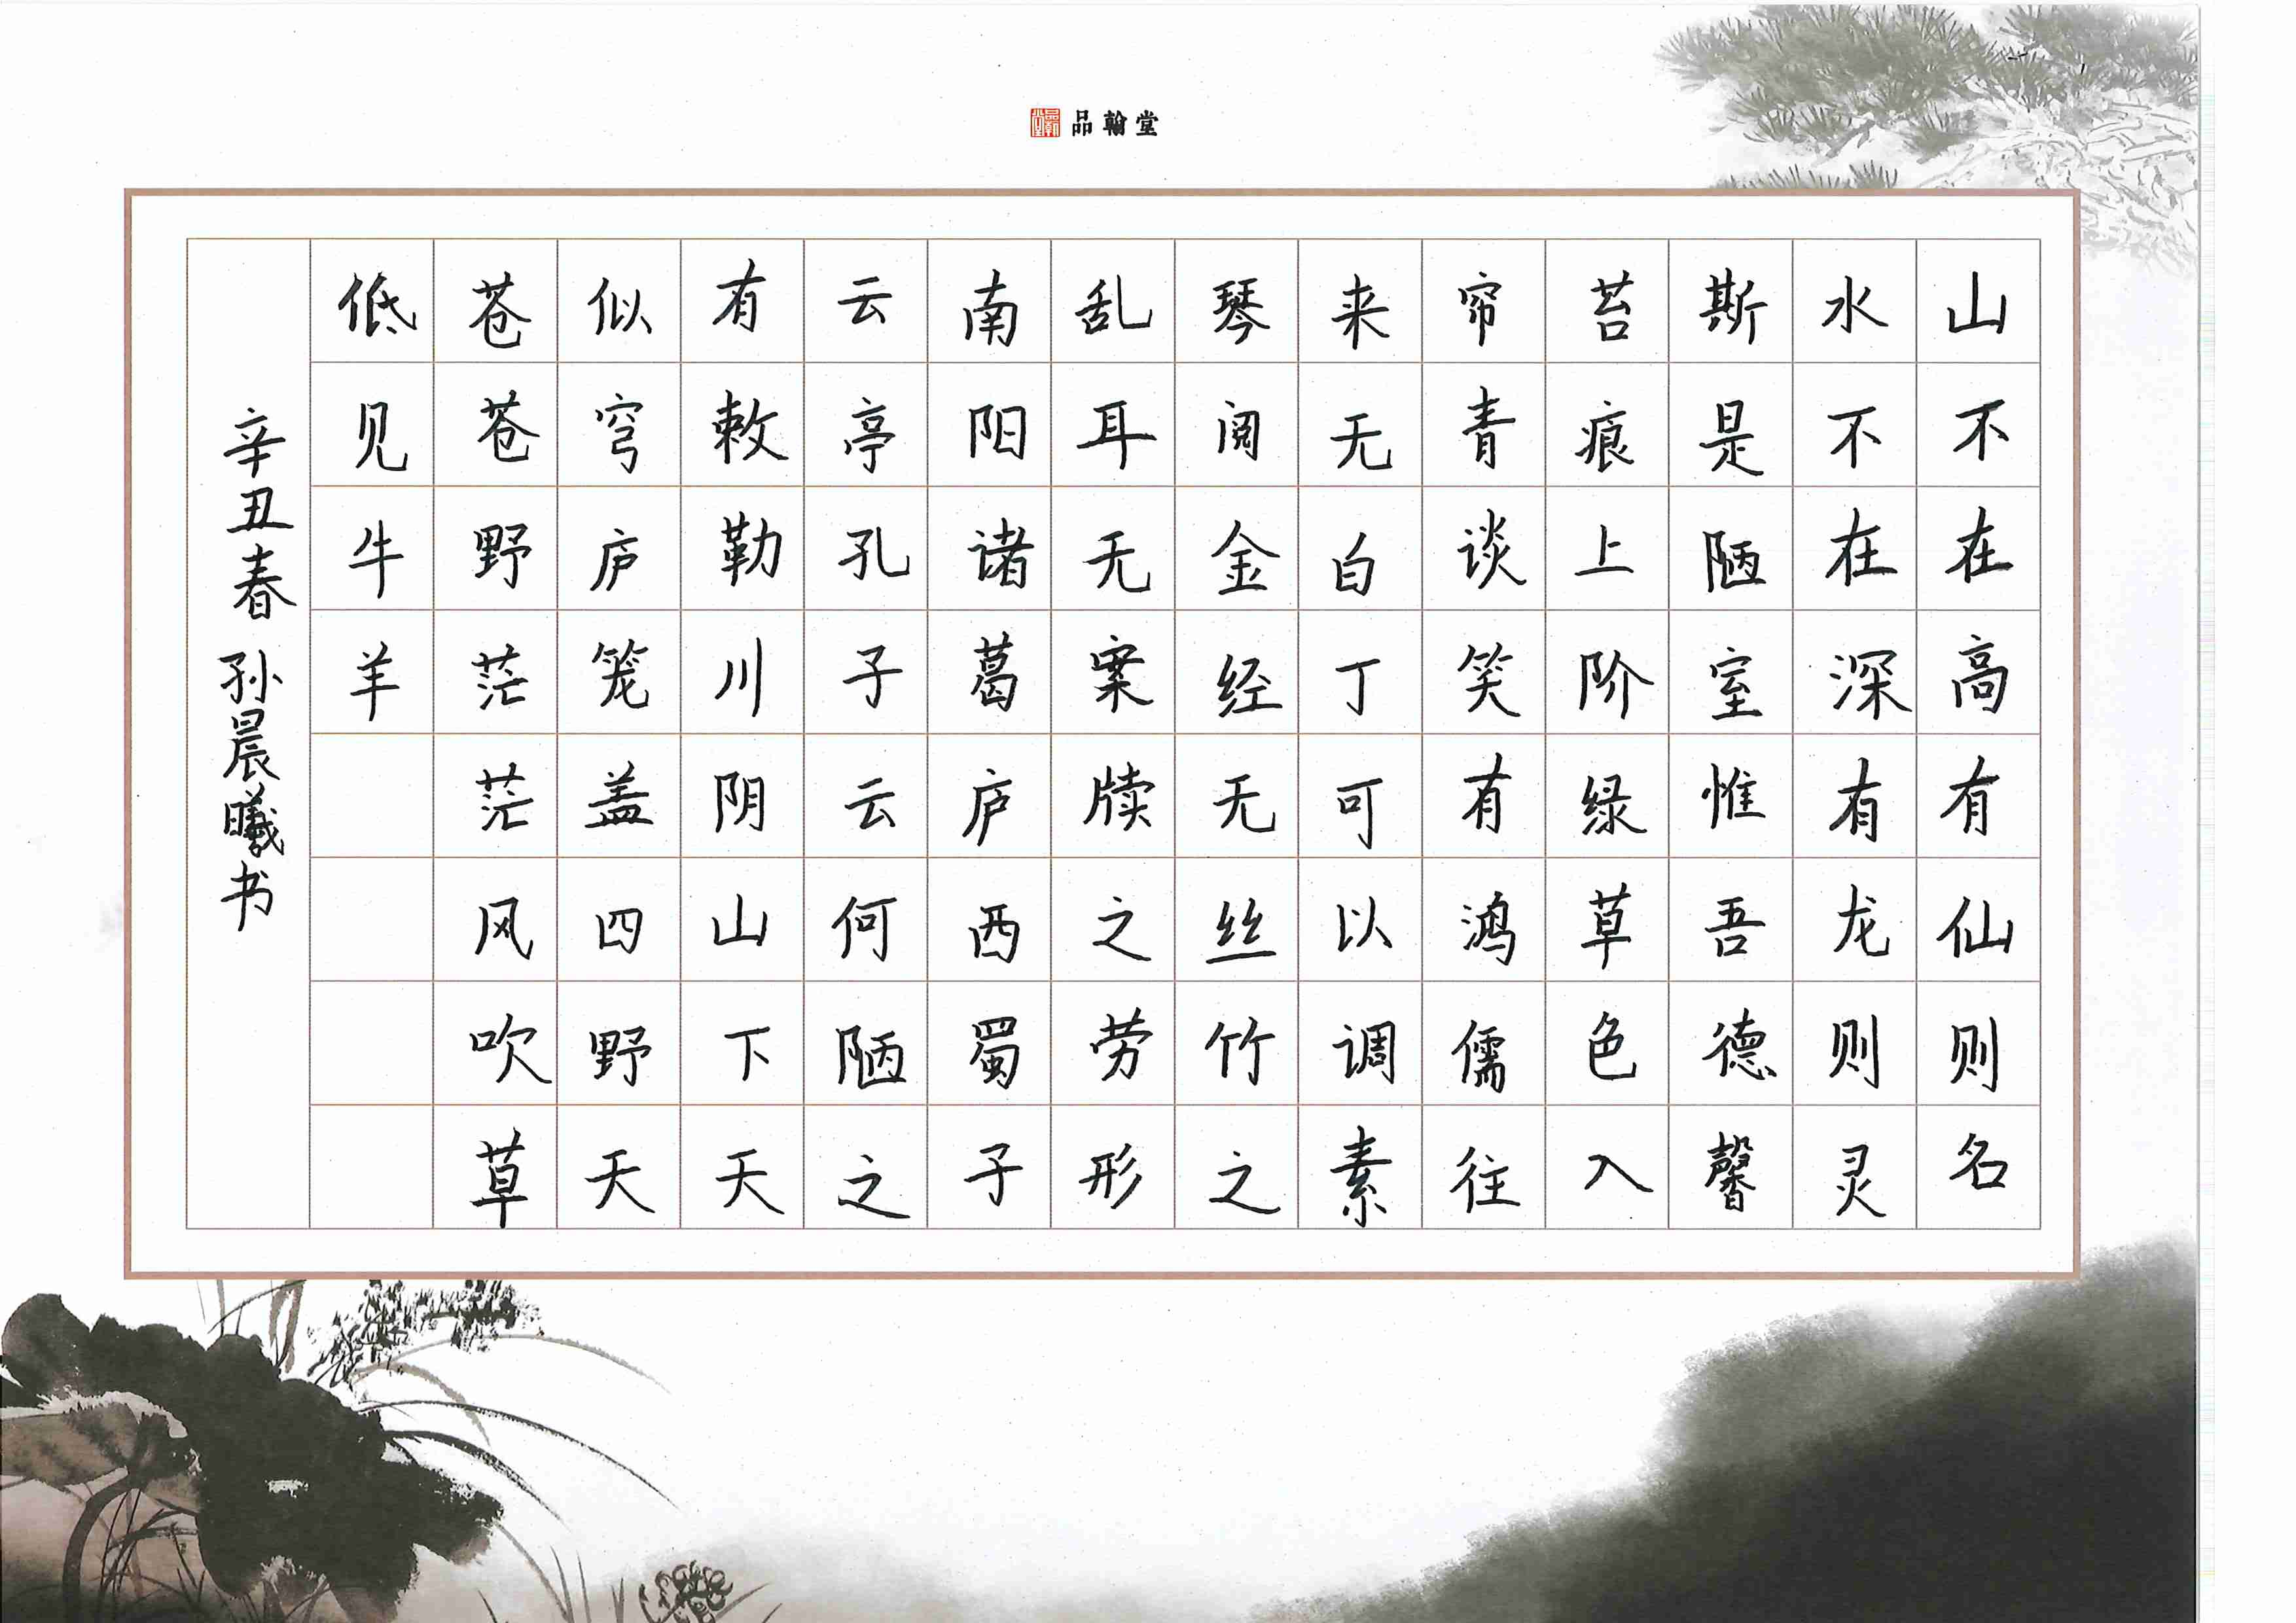 品翰堂
山不在高有仙则名
水不在深有龙则灵
斯是陋室惟吾德馨
苔痕上阶绿草色入
帘青谈笑有鸿儒往
来无白丁可以调素
琴阅金经无丝竹之
乱耳无案牍之劳形
南阳诸葛庐西蜀子
云亭孔子云何陋之
有敕勒川阴山下天
似穹庐笼盖四野天
苍苍野茫茫风吹草
低见牛羊
辛丑春孙晨曦书